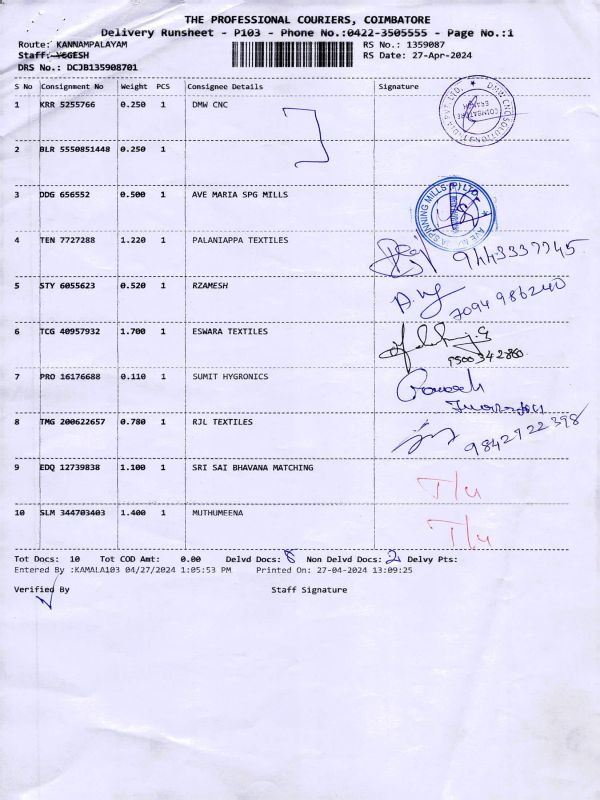 THE PROFESSIONAL COURIERS, COIMBATORE
Delivery Runsheet - P103 - Phone No.:0422-3505555 - Page No.:1
Route: KANNAMPALAYAM RS No.: 1359087
Staff: YOGESH RS Date: 27-Apr-2024
DRS No.: DCJB135908701
S No Consignment No Weight PCS Consignee Details Signature
1 KRR 5255766 0.250 1 DMW CNC
2 BLR 5550851448 0.250 1
3 DDG 656552 0.500 1 AVE MARIA SPG MILLS
4 TEN 7727288 1.220 1 PALANIAPPA TEXTILES
9443337745
5 STY 6055623 0.520 1 RZAMESH
7094986240
6 TCG 40957932 1.700 1 ESWARA TEXTILES
7 PRO 16176688 0.110 1 SUMIT HYGRONICS
8 TMG 200622657 0.780 1 RJL TEXTILES
9842722398
9 EDQ 12739838 1.100 1 SRI SAI BHAVANA MATCHING
10 SLM 344703403 1.400 1 MUTHUMEENA
Tot Docs: 10 Tot COD Amt: 0.00 Delvd Docs: 8 Non Delvd Docs: 2 Delvy Pts:
Entered By :KAMALA103 04/27/2024 1:05:53 PM Printed On: 27-04-2024 13:09:25
Verified By Staff Signature